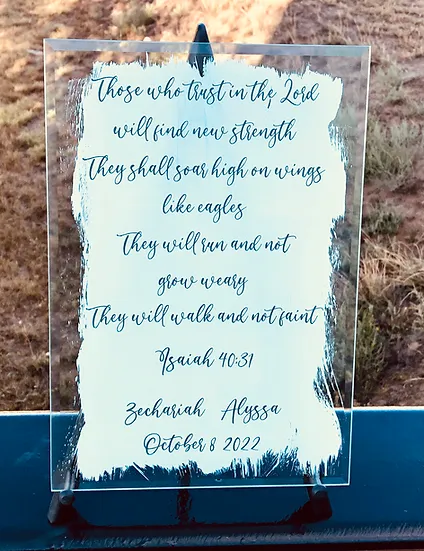 Those who trust in the Lord
will find new strength
They shall soar high on wings
like eagles
They will run and not
grow weary
They will walk and not faint
Isaiah 40:31
Zechariah Alyssa
October 8 2022